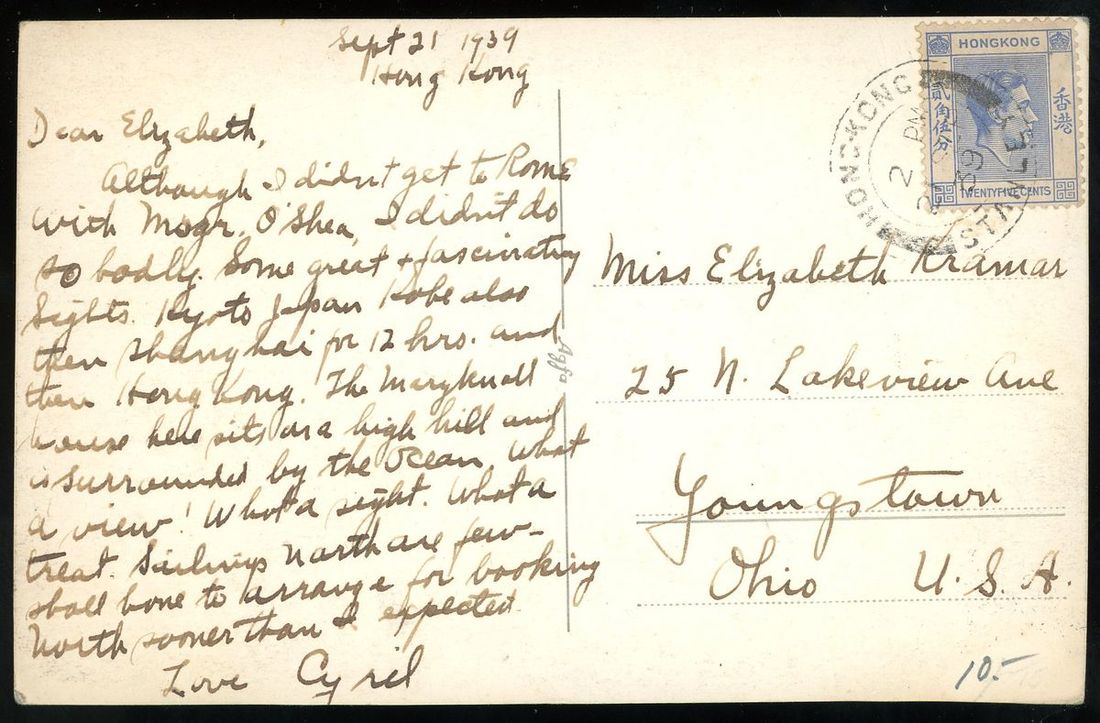 Sept 21 1939
Hong Kong
Dear Elizabeth,
Although I didn't get to Rome
with Msgr. O'Shea, I didn't do
so badly. Some great & fascinating
sights. Kyoto Japan Kobe also
then Shanghai for 12 hrs. and
then Hong Kong. The Maryknoll
house here sits on a high hill and
is surrounded by the Ocean. What
a view! What a sight. What a
treat. Sailings North are few-
shall have to arrange for booking
North sooner than I expected.
Love Cyril
Agfa
HONGKONG
貳角伍分
香港
TWENTYFIVE CENTS
HONG KONG
2 PM
39
STANLEY
Miss Elizabeth Kramar
25 N. Lakeview Ave
Youngstown
Ohio U.S.A.
10.-